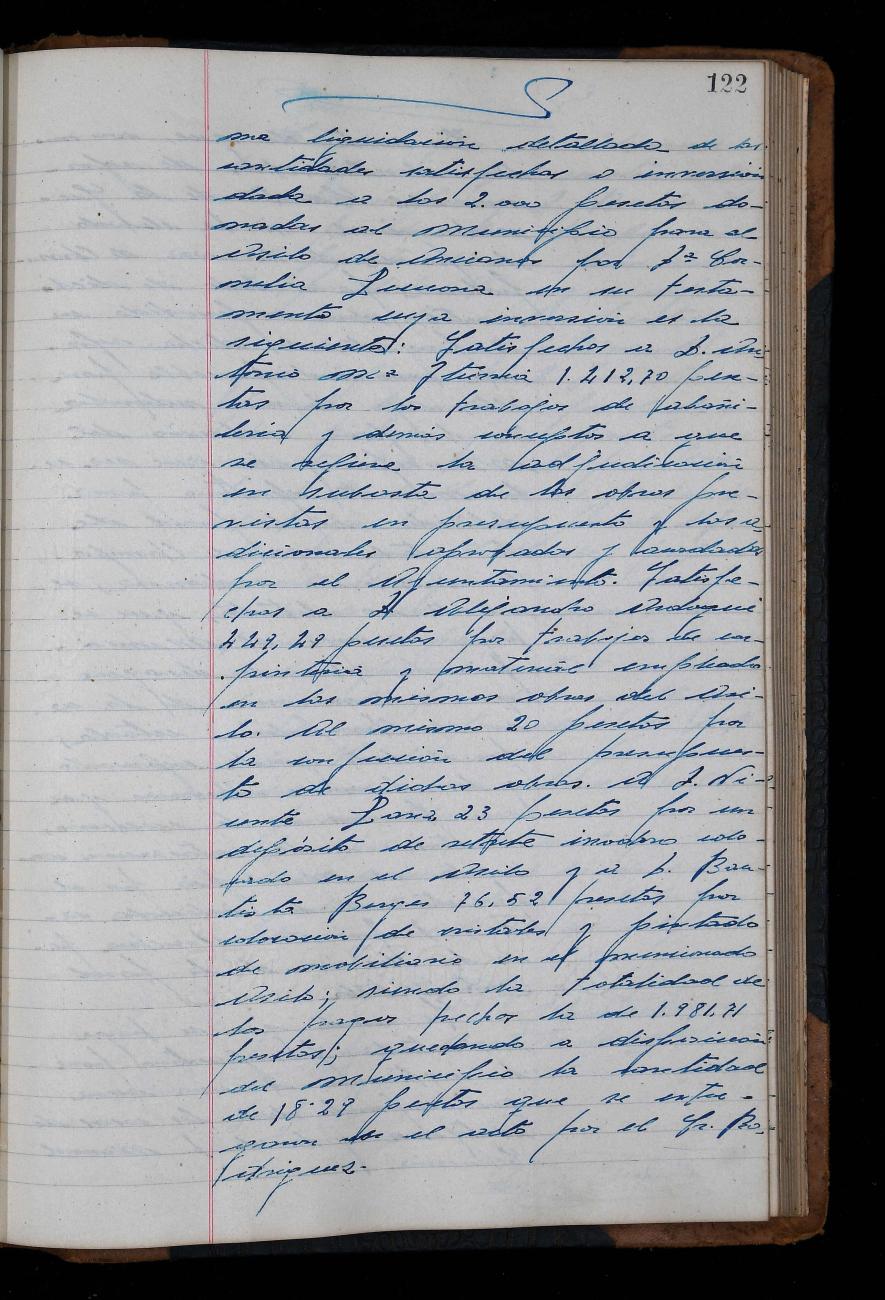 122
na liquidación detallada de las
cantidades satisfechas o inversión
dada a las 2.000 pesetas do-
nadas al Municipio para el
Asilo de Ancianos por Dª Cor-
nelia Lecuona en su testa-
mento cuya inversión es la
siguiente: Satisfechos a D. An-
tonio Mª 1.412,70 pese-
tas por los trabajos de albañi-
lería y demás conceptos a que
se refiere la adjudicación
en subasta de las obras pre-
vistas en presupuesto y las a-
dicionales aprobadas y acordadas
por el Ayuntamiento. Satisfe-
chos a D Alejandro
449,49 pesetas por trabajos de car-
pintería y material empleado
en las mismas obras del Asi-
lo. Al mismo 20 pesetas por
la confección del presupues-
to de dichas obras. A D. Vi-
cente 23 pesetas por un
depósito de retrete inodoro colo-
cado en el Asilo y a D. Bau-
tista Berges 76,52 pesetas por
colocación de cristales y pintado
de mobiliario en el mencionado
Asilo; siendo la totalidad de
los pagos hechos la de 1.981,71
pesetas; quedando a disposición
del Municipio la cantidad
de 18,29 pesetas que se entre-
garon en el acto por el Sr. Ro-
dríguez.